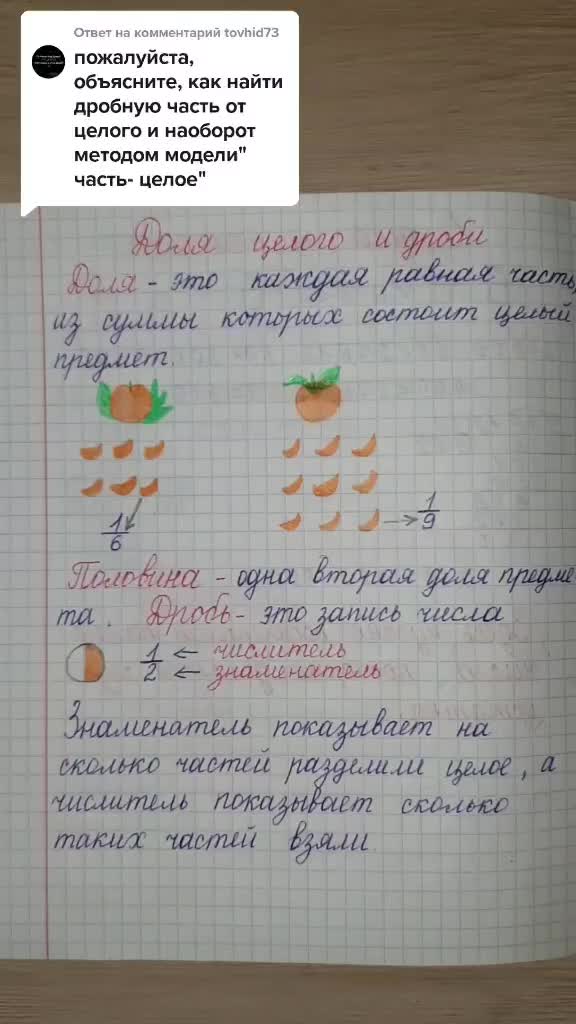 Ответ на комментарий tovhid73
пожалуйста,
объясните, как найти
дробную часть от
целого и наоборот
методом модели"
часть- целое"
Доля целого и дроби
Доля - это каждая равная часть,
из суммы которых состоит целый
предмет.
1/6
1/9
Половина - одна вторая доля предме-
та. Дробь - это запись числа
1/2 ← числитель
← знаменатель
Знаменатель показывает на
сколько частей разделили целое, а
числитель показывает сколько
таких частей взяли.